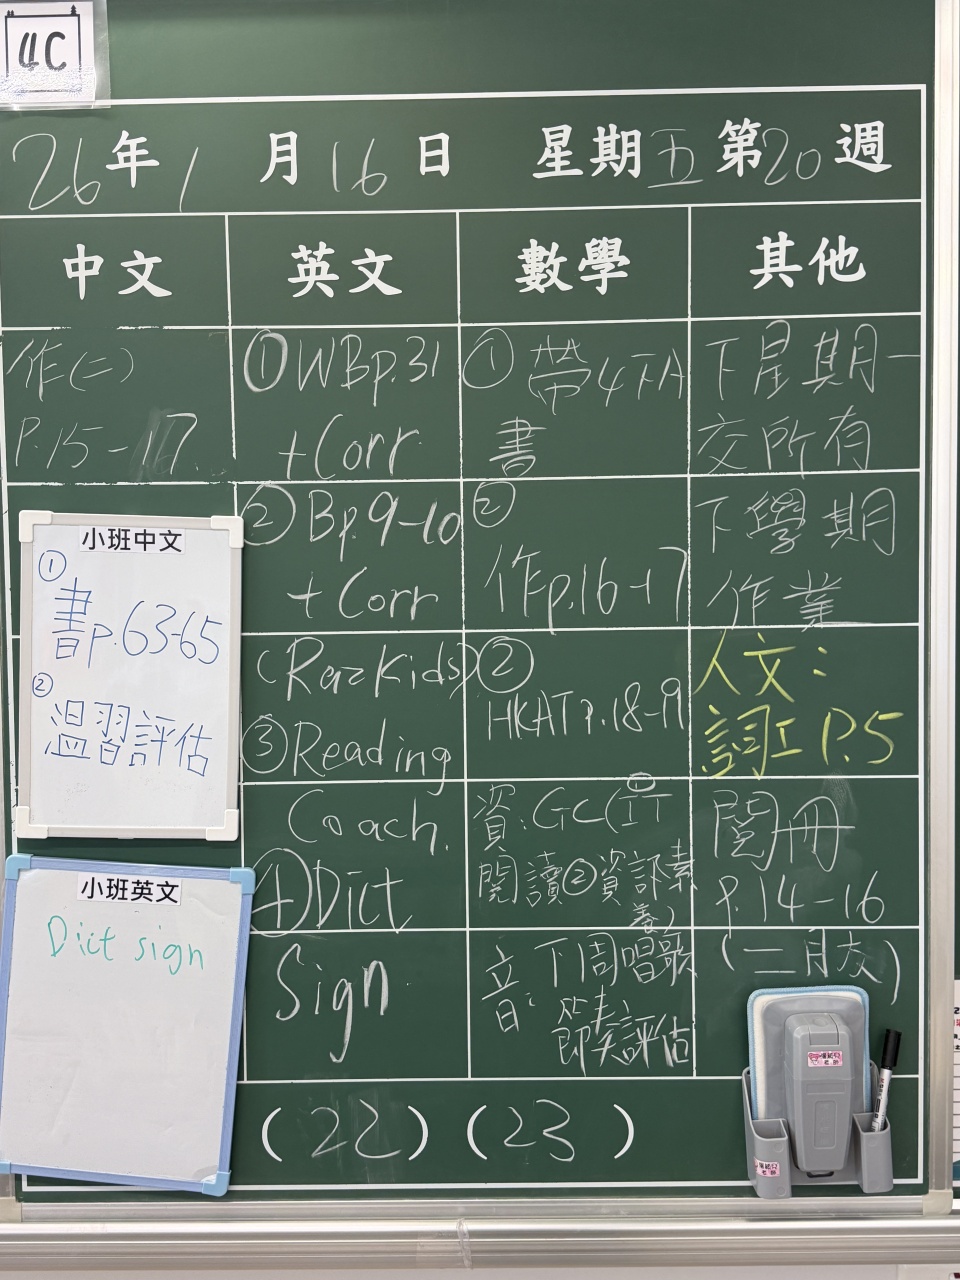 4C
26年1月16日 星期五 第20週
中文
英文
數學
其他
作(二)
P.15-17
小班中文
①
書p.63-65
②
溫習評估
小班英文
Dict sign
①WBp.31
+Corr
②Bp.9-10
+Corr
(RazKids)
③Reading
Coach
④Dict
Sign
(22)
①帶4下A
書
②
作p.16-17
②
HKAT P.18-19
資:GC(①IT
閱讀②資訊素
養)
音:下周唱歌
節奏評估
(23)
下星期一
交所有
下學期
作業
人文:
詞工P.5
閱冊
P.14-16
(二月交)